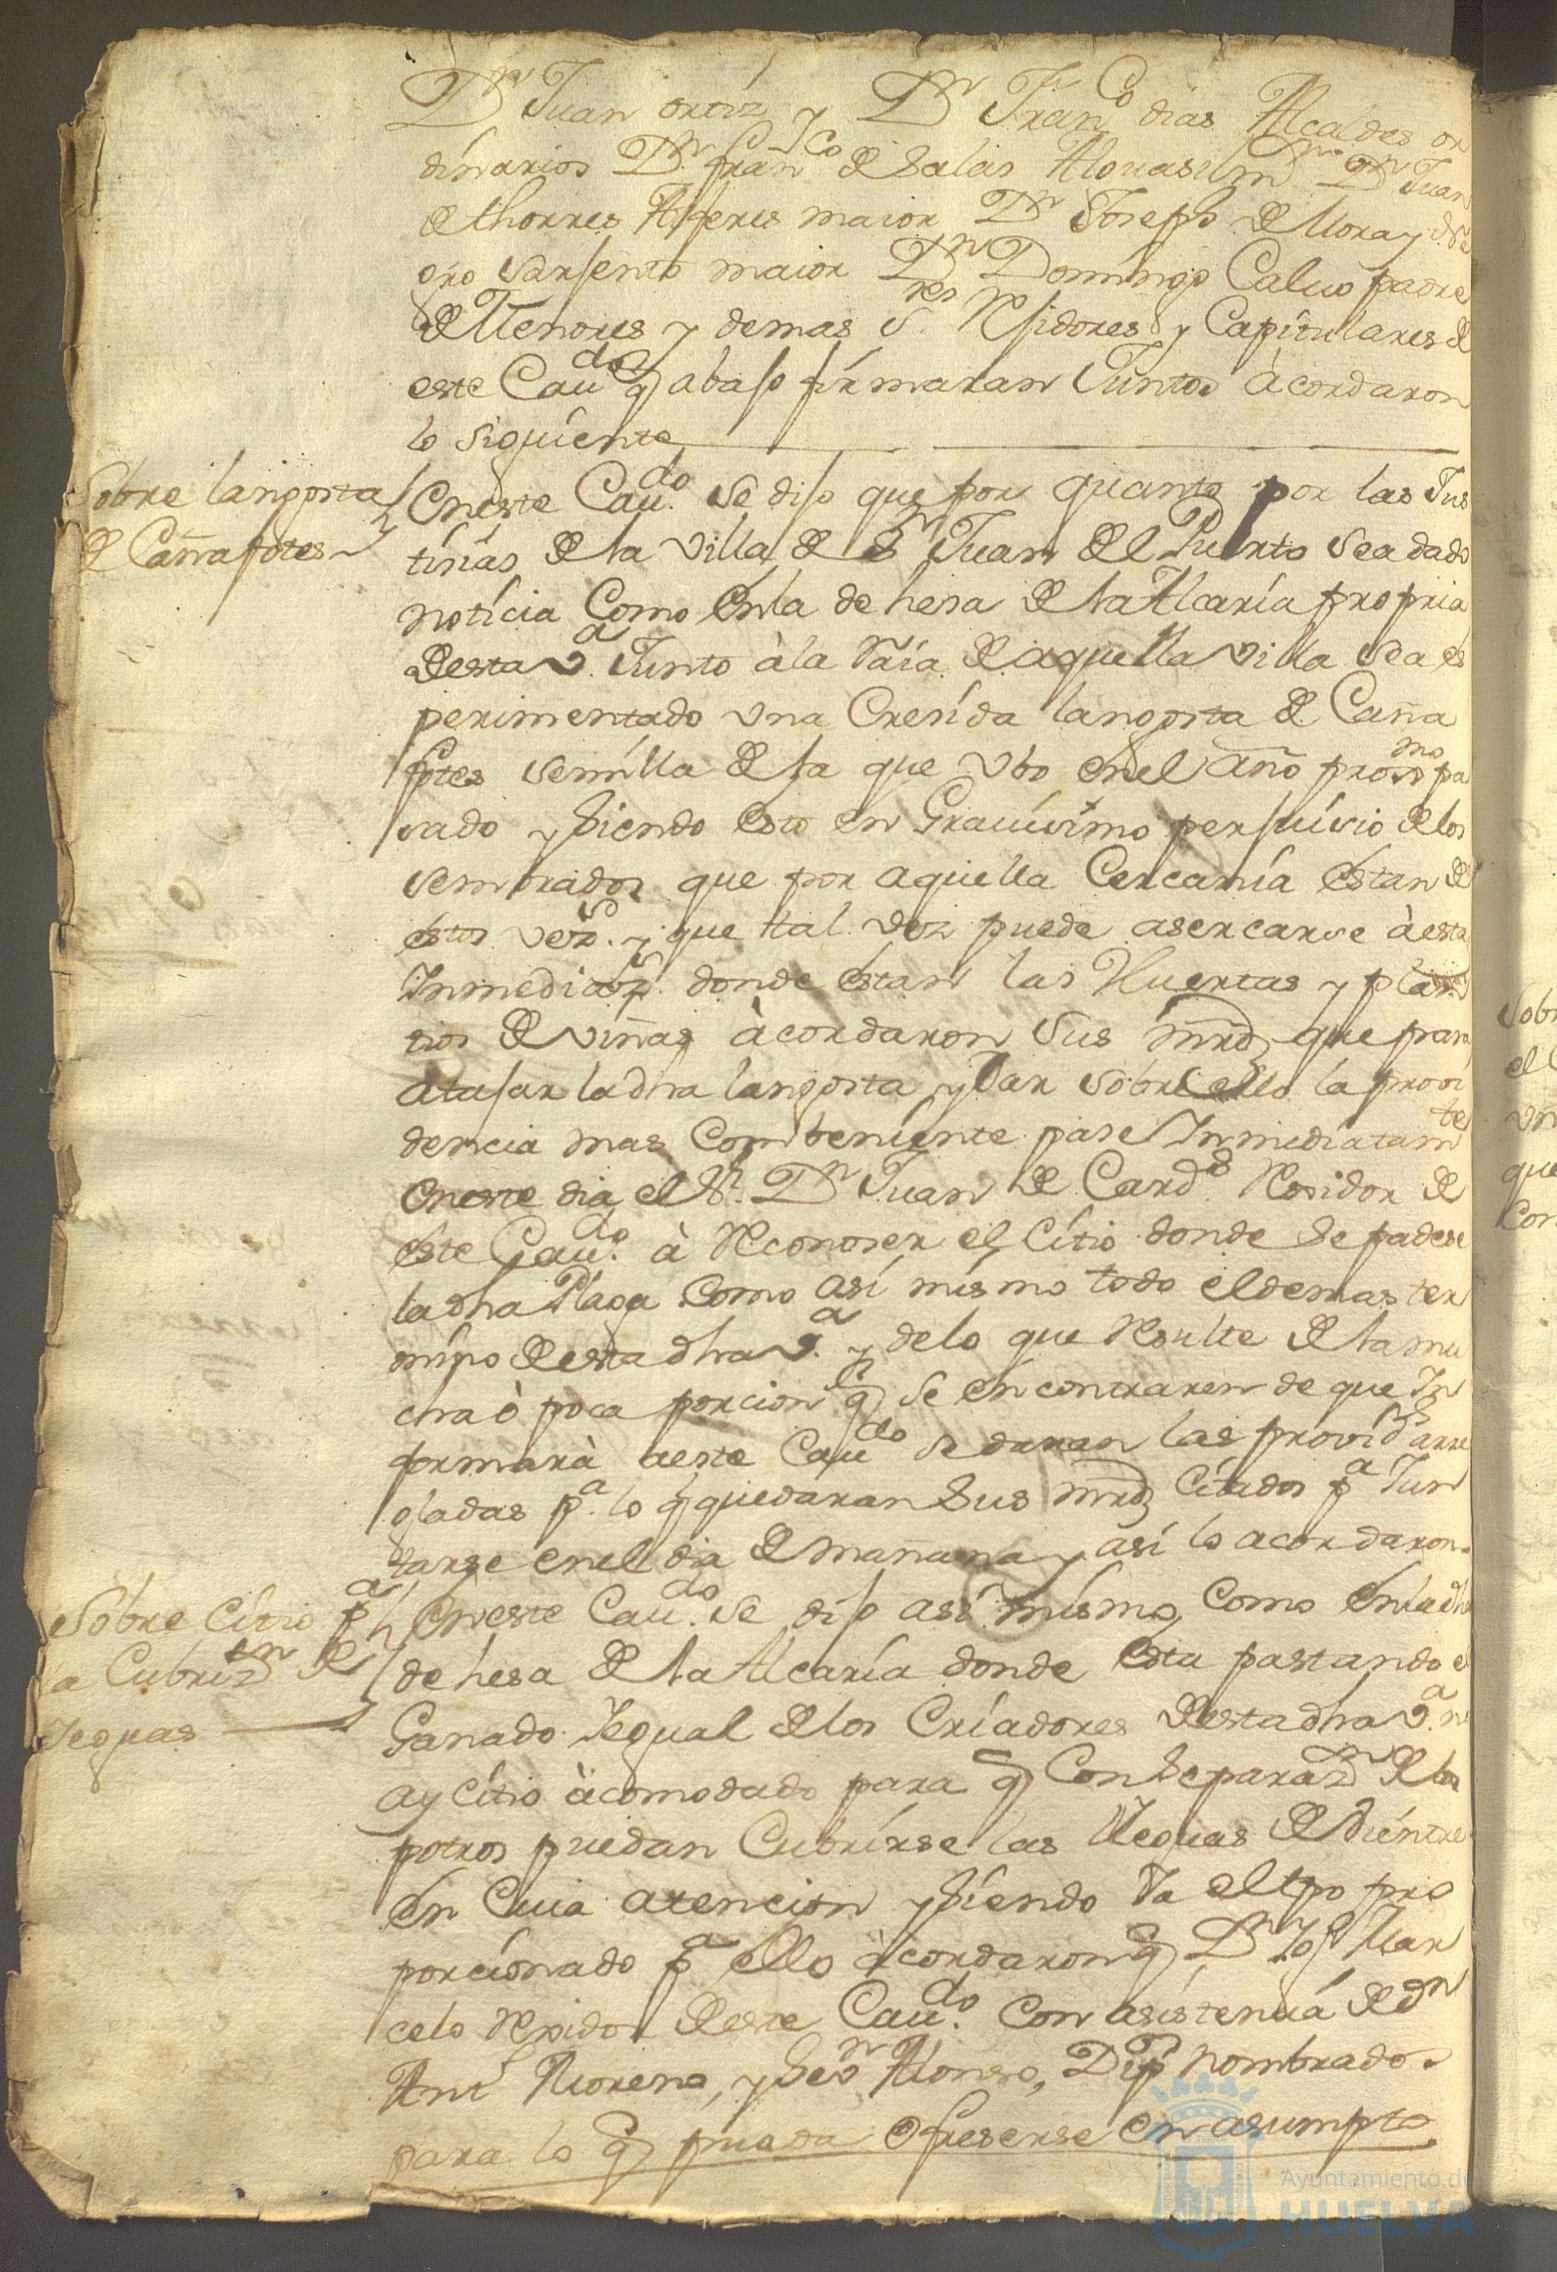 Dn Juan ortiz y Dn Franco dias Alcaldes or
dinarios Dn franco de Salas Alguasil mr Dn Juan
de thorres Alferes maior Dn Joseph de Mora y
oro Sarjento maior Dn Domingo Caluo padre
de Menores y demas Sres Rejidores y Capitulares de
este Caudo q abajo firmaran Juntos àcordaron
lo siguiente
Sobre langosta
de Cañafotes
Eneste Caudo. Se dijo que por quanto por las Jus
tisias de la villa de Sn Juan del Puerto Sea dado
noticia Como Enla dehesa de la Alcaria propria
desta Va. Junto àla Raia de aquella villa Sea es
perimentado vna Cresida langosta de Caña
fotes Semilla de la que vbo enel año proxmo pa
sado y siendo esto en Grauisimo perjuisio de los
sembrados que por aquella Cercania Estan de
estos vezs. y que tal vez puede asercarse àesta
Inmediazs. donde estan las Huertas y plan
tios de viñas àcordaron Sus mrds que para
atajar la dha langosta y dar sobre ello la provi
dencia mas Combeniente pase Inmediatamte
eneste dia el Sr. Dn Juan de Cards Residor de
este Caudo. à Reconoser el Citio donde Se padese
la dha Plaga Como asi mismo todo el demas ter
mino de esta dha Va. y delo que Resulte de la mu
cha ò poca porcion q se encontraren de que In
formarà aeste Caudo se daran las provids arre
gladas pa. lo q quedaran Sus mrds Citados pa Jun
tarse enel dia de mañana y asi lo acordaron
Sobre Citio pa
la Cubrizn de
Yeguas
Eneste Caudo. se dijo asi mismo, Como Enla dha
dehesa de la Alcaria donde esta pastando el
Ganado Yegual de los Criadores desta dha Va. no
ay Citio àcomodado para q Con Separazn de los
potros puedan Cubrirse las Yeguas de Vientre
En Cuia atencion y siendo Ya el tpo pro
porcionado pa ello àcordaron q Dn Joseph Mar
celo Rejidor deeste Caudo. Con asistencia de dn
Anto Moreno, y Sevn Alonso, Dips nombrados
para lo q pueda Ofreserse en asumpto
Ayuntamiento de
HUELVA